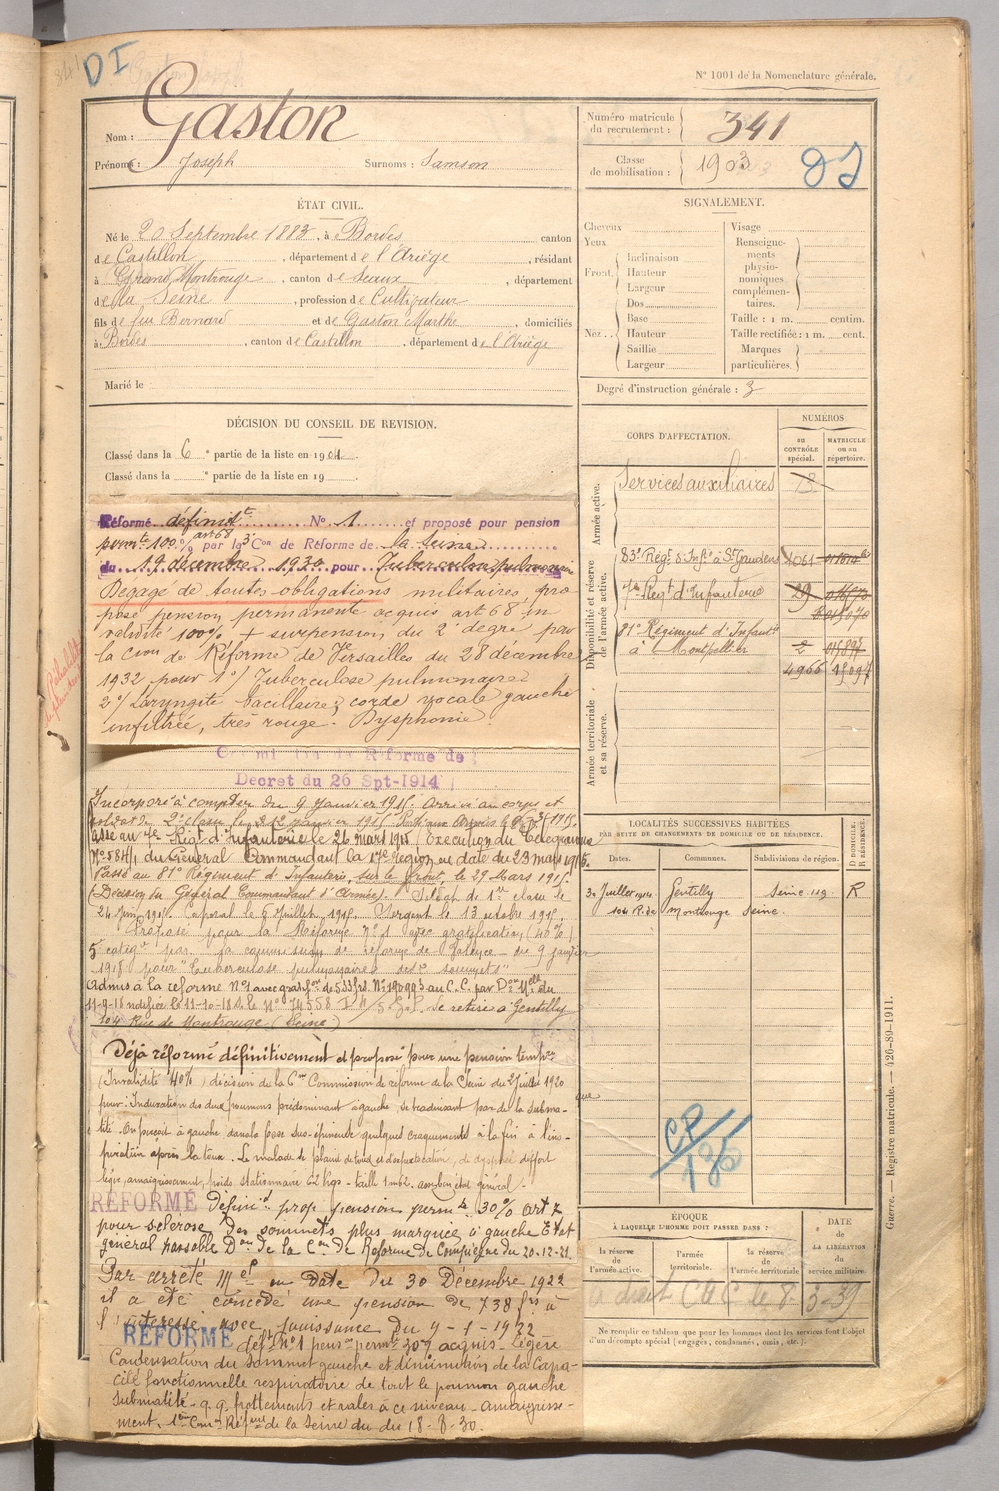 DI
N° 1001 de la Nomenclature générale.
Nom : Gaston
Prénoms : Joseph Surnoms : Samson
Numéro matricule du recrutement : 341
Classe de mobilisation : 1903
ÉTAT CIVIL.
Né le 20 Septembre 1883, à Bordes canton
de Castillon, département de l'Ariège, résidant
à Grand Montrouge, canton de Sceaux, département
de la Seine, profession de Cultivateur
fils de feu Bernard et de Gaston Marthe, domiciliés
à Bordes, canton de Castillon, département de l'Ariège
Marié le
DÉCISION DU CONSEIL DE REVISION.
Classé dans la 6e partie de la liste en 1904.
Classé dans la e partie de la liste en 19
Réformé définitt N° 1 et proposé pour pension
permte 100% art 68 par la 3e Con de Réforme de la Seine
du 19 décembre 1930 pour Tuberculose pulmonaire
Dégagé de toutes obligations militaires, pro
posé pension permanente acquis art 68 in
validité 100% + surpension du 2e degré par
la Cion de Réforme de Versailles du 28 décembre
1932 pour 1°/ Tuberculose pulmonaire
2°/ Laryngite bacillaire; corde vocale gauche
infiltrée, très rouge. Dysphonie
Réforme de
Décret du 26 Spt-1914
Incorporé à compter du 9 Janvier 1915. Arrivé au corps et
soldat de 2e classe le
Passé au 7e Régt d'Infanterie le 26 mars 1915 (Exécution du Télégramme
N° 584/1 du Général Commandant la 17e Région en date du 23 mars 1915.
Passé au 81e Régiment d'Infanterie, sur le front, le 29 Mars 1915.
(Décision du Général Commandant d'Armée). Soldat de 1re classe le
24 Juin 1915. Caporal le 6 Juillet 1915. Sergent le 13 octobre 1915.
Proposé pour la Réforme n° 1 avec gratification (40%)
5e catégie par la commission de réforme de Valence du 9 janvier
1918 pour "Tuberculose pulmonaire des sommets"
Admis à la réforme N°1 avec gratifon de 533 frs N° 190993 au C.C. par Don Mlle du
11-9-18 notifiée le 11-10-18 s. le N° 74558 Se retire à Gentilly
104 Rue de Montrouge (Seine)
Déjà réformé définitivement et proposé pour une pension tempre
(Invalidité 40%) décision de la 6me Commission de réforme de la Seine du 2 juillet 1920
pour : Induration des deux poumons prédominant à gauche, se traduisant par de la subma-
tité. On perçoit à gauche dans la fosse sus-épineuse quelques craquements à la fin de l'ins-
piration après la toux. Le malade se plaint de toux et d'expectoration, de dyspnée d'effort
léger, amaigrissement, poids stationnaire 62 kgs - taille 1m62. assez bon état général.
RÉFORMÉ Définitt prop. pension permte 30% art 7
pour sclérose des sommets plus marquée à gauche Etat
général passable Don de la Con de Réforme de Compiègne du 20-12-21
Par arrêté Mel en date du 30 Décembre 1922
il a été concédé une pension de 738 frs à
l'intéressé avec jouissance du 9-1-1922
RÉFORMÉ déft N°1 pens permte 30% acquis - Légère
Condensation du sommet gauche et diminution de la capa-
cité fonctionnelle respiratoire de tout le poumon gauche
submatité - q.q. frottements et râles à ce niveau - amaigrisse-
ment. 1re Com Réfme de la Seine du du 18-8-30.
SIGNALEMENT.
Cheveux
Yeux
Front. Inclinaison
Hauteur
Largeur
Nez. Dos
Base
Hauteur
Saillie
Largeur
Visage
Renseignements physionomiques complémentaires.
Taille : 1 m. centim.
Taille rectifiée : 1 m. cent.
Marques particulières.
Degré d'instruction générale : 3
CORPS D'AFFECTATION.
NUMÉROS
au CONTRÔLE spécial.
MATRICULE ou au répertoire.
Armée active.
Services auxiliaires 73
Disponibilité et réserve de l'armée active.
83e Régt d'Infie à St Gaudens 4061
7e Régt d'Infanterie 29
81e Régiment d'Infantie
à Montpellier
4966
Armée territoriale et sa réserve.
LOCALITÉS SUCCESSIVES HABITÉES
PAR SUITE DE CHANGEMENTS DE DOMICILE OU DE RÉSIDENCE.
Dates. Communes. Subdivisions de région.
D DOMICILE. R RÉSIDENCE.
30 juillet 1914 Gentilly Seine R
104 R. de Montrouge Seine.
CP/136
ÉPOQUE
À LAQUELLE L'HOMME DOIT PASSER DANS :
la réserve de l'armée active.
l'armée territoriale.
la réserve de l'armée territoriale
DATE de LA LIBÉRATION du service militaire.
a droit C d C le 8-3-39
Ne remplir ce tableau que pour les hommes dont les services font l'objet
d'un décompte spécial (engagés, condamnés, omis, etc.).
Guerre. — Registre matricule. — 426-89-1911.